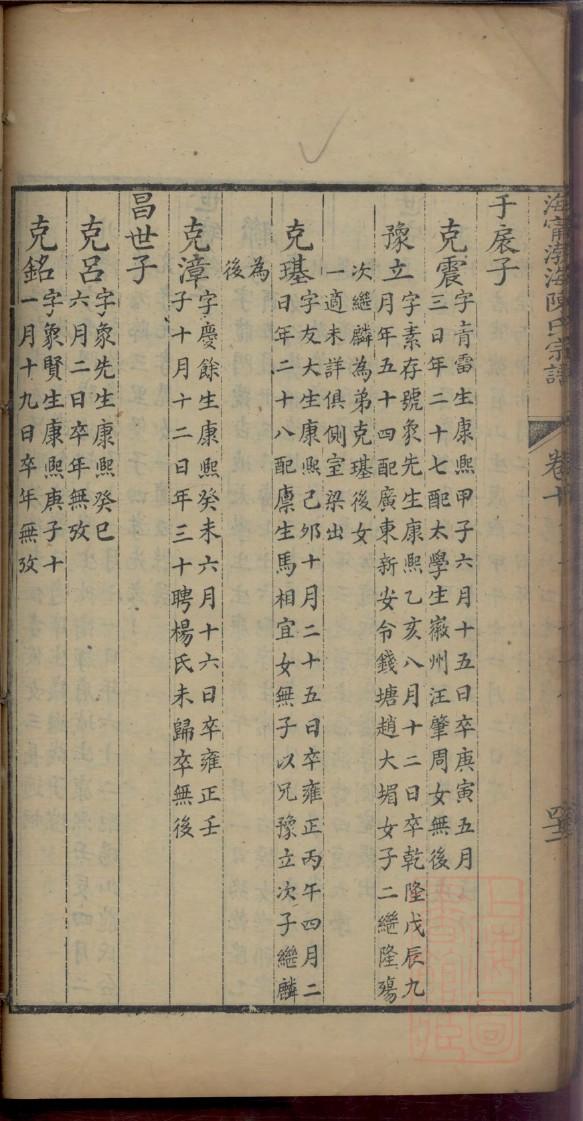 海甯渤海陳氏宗譜
卷十
于扆子
克震
字青雷生康熙甲子六月十五日卒庚寅五月
三日年二十七配太學生徽州汪肇周女無後
豫立
字素存號象先生康熙乙亥八月十二日卒乾隆戊辰九
月年五十四配廣東新安令錢塘趙大堳女子二繼隆殤
次繼麟為弟克璂後女
一適未詳俱側室梁出
克璂
字友大生康熙己夘十月二十五日卒雍正丙午四月二
日年二十八配廪生馬相宜女無子以兄豫立次子繼麟
為
後
克漳
字慶餘生康熙癸未六月十六日卒雍正壬
子十月十二日年三十聘楊氏未歸卒無後
昌世子
克呂
字象先生康熙癸巳
六月二日卒年無攷
克銘
字象賢生康熙庚子十
一月十九日卒年無攷